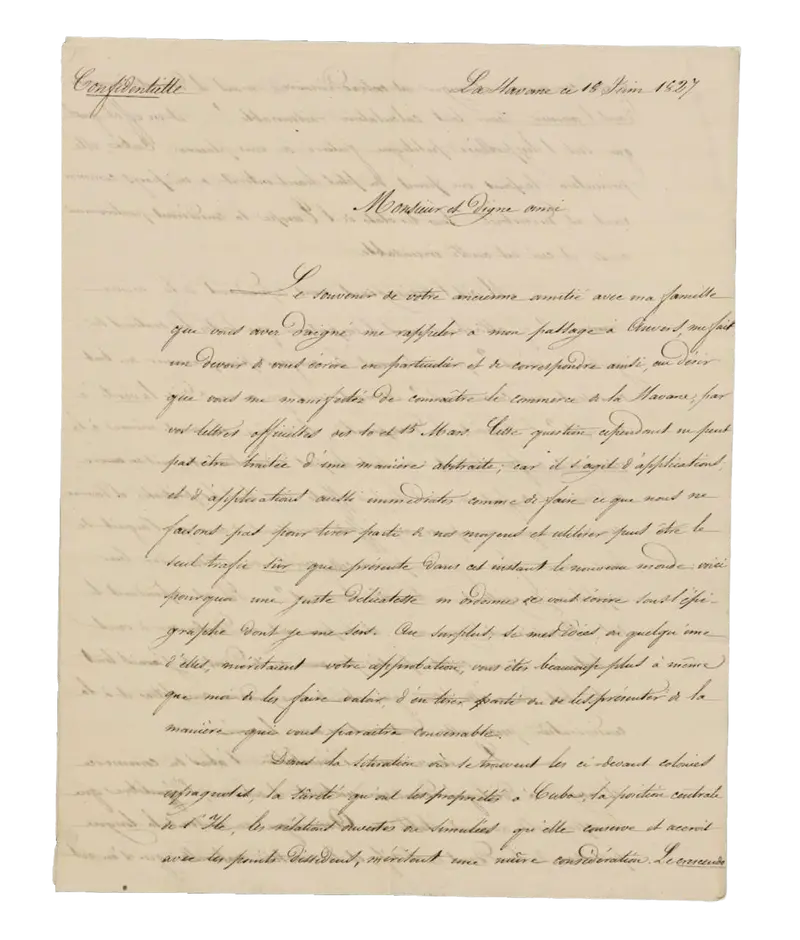 Confidentielle
La Havane ce 18 Juin 1827
Monsieur et digne ami
Le souvenir de votre ancienne amitié avec ma famille
que vous avez daigné me rappeler à mon passage à Anvers, me fait
un devoir de vous écrire en particulier et de correspondre ainsi, au désir
que vous me manifestez de connaître le commerce de la Havane, par
vos lettres officielles des 10 et 15 Mars. Cette question cependant ne peut
pas être traitée d'une manière abstraite; car il s'agit d'applications,
et d'applications aussi immédiates comme de faire ce que nous ne
faisons pas pour tirer parti de nos moyens et utiliser peut être le
seul trafic sûr que présente dans cet instant le nouveau monde: voici
pourquoi une juste délicatesse m'ordonne de vous écrire sous l'épi-
graphe dont je me sers. Au surplus, si mes idées ou quelqu'une
d'elles, méritaient votre approbation, vous êtes beaucoup plus à même
que moi de les faire valoir, d'en tirer parti ou de les présenter de la
manière qui vous paraitra convenable.
Dans la situation où se trouvent les ci devant colonies
espagnoles, la sûreté qu'ont les propriétés à Cuba, la position centrale
de l'Ile, les rélations ouvertes ou simulées qu'elle conserve et accroit
avec les points dissidens, méritent une mûre considération. Le crescendo